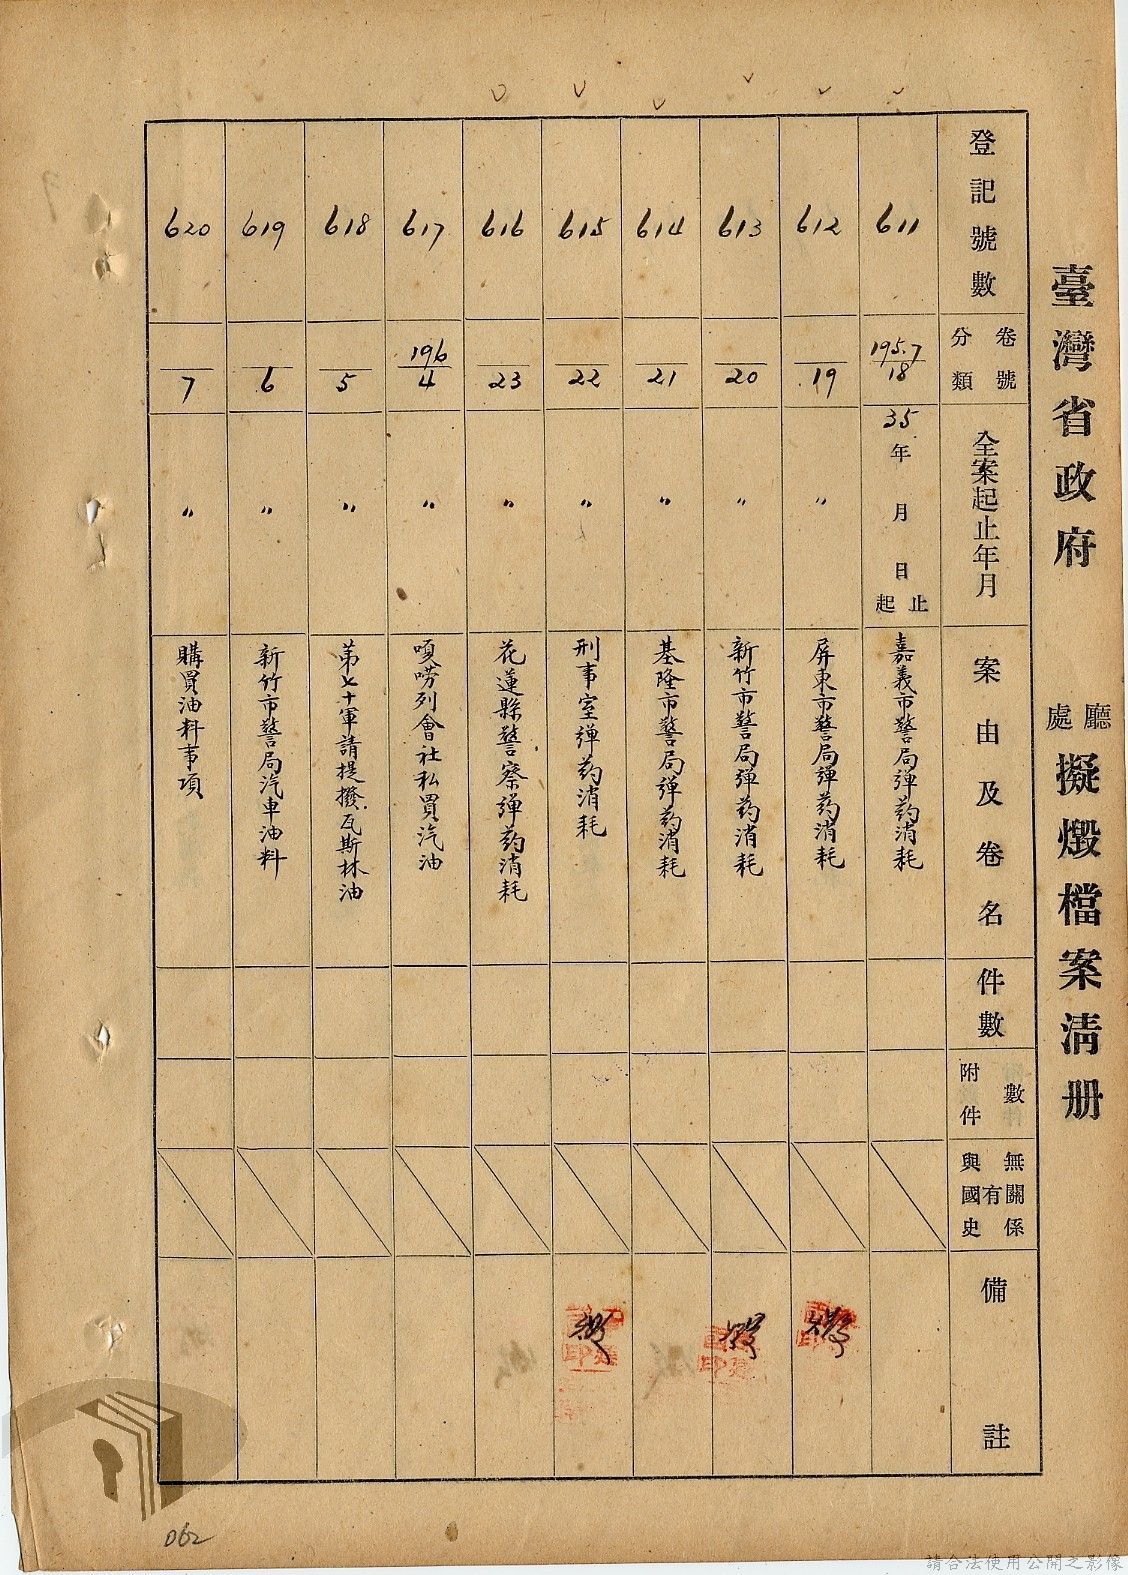 臺灣省政府
廳
處
擬燬檔案清册
登記號數
卷號
分類
全案起止年月
案由及卷名
件數
附件
數
與國史
有
無關係
備註
611
195.7
18
35年 月 日
止
起
嘉義市警局彈药消耗
612
19
〃
屏東市警局彈药消耗
613
20
〃
新竹市警局彈药消耗
614
21
〃
基隆市警局彈药消耗
615
22
〃
刑事室彈药消耗
616
23
〃
花蓮縣警察彈药消耗
617
196
4
〃
嘮列會社私買汽油
618
5
〃
第七十軍請提撥瓦斯林油
619
6
〃
新竹市警局汽車油料
620
7
〃
購買油料事項
062
請合法使用公開之影像